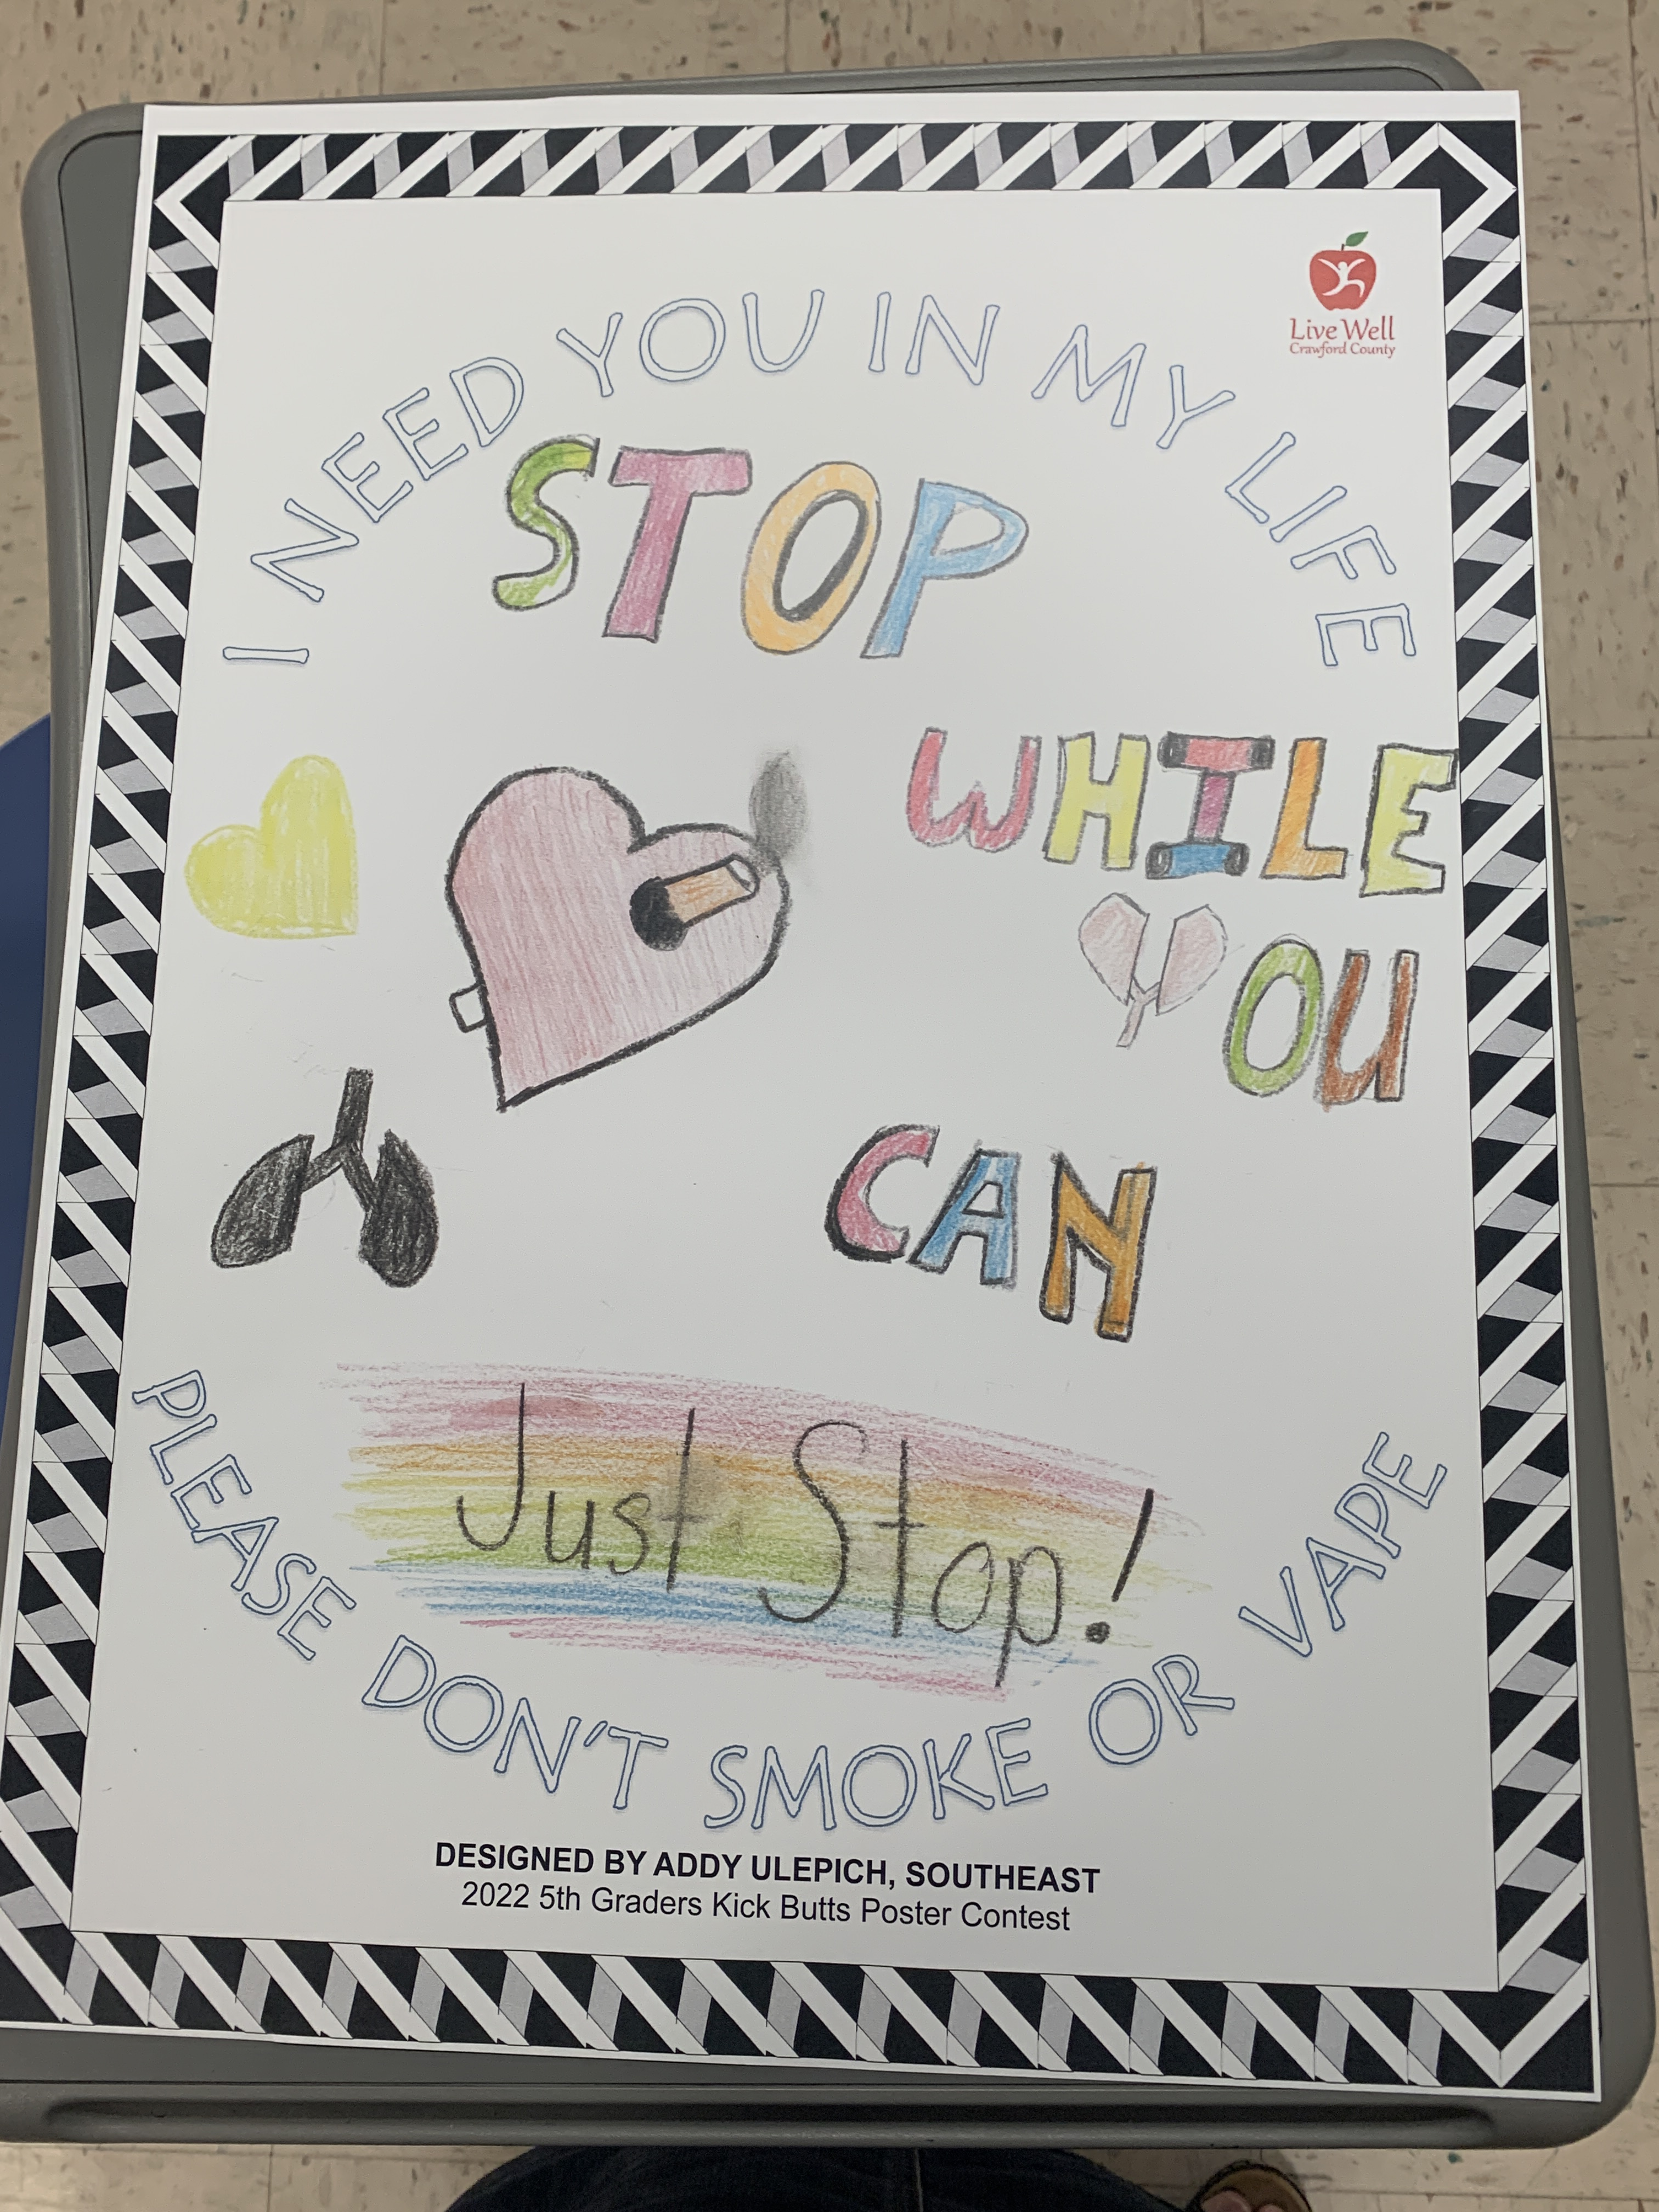 Live Well
Crawford County
I NEED YOU IN MY LIFE
STOP
WHILE
YOU
CAN
Just Stop!
PLEASE DON'T SMOKE OR VAPE
DESIGNED BY ADDY ULEPICH, SOUTHEAST
2022 5th Graders Kick Butts Poster Contest